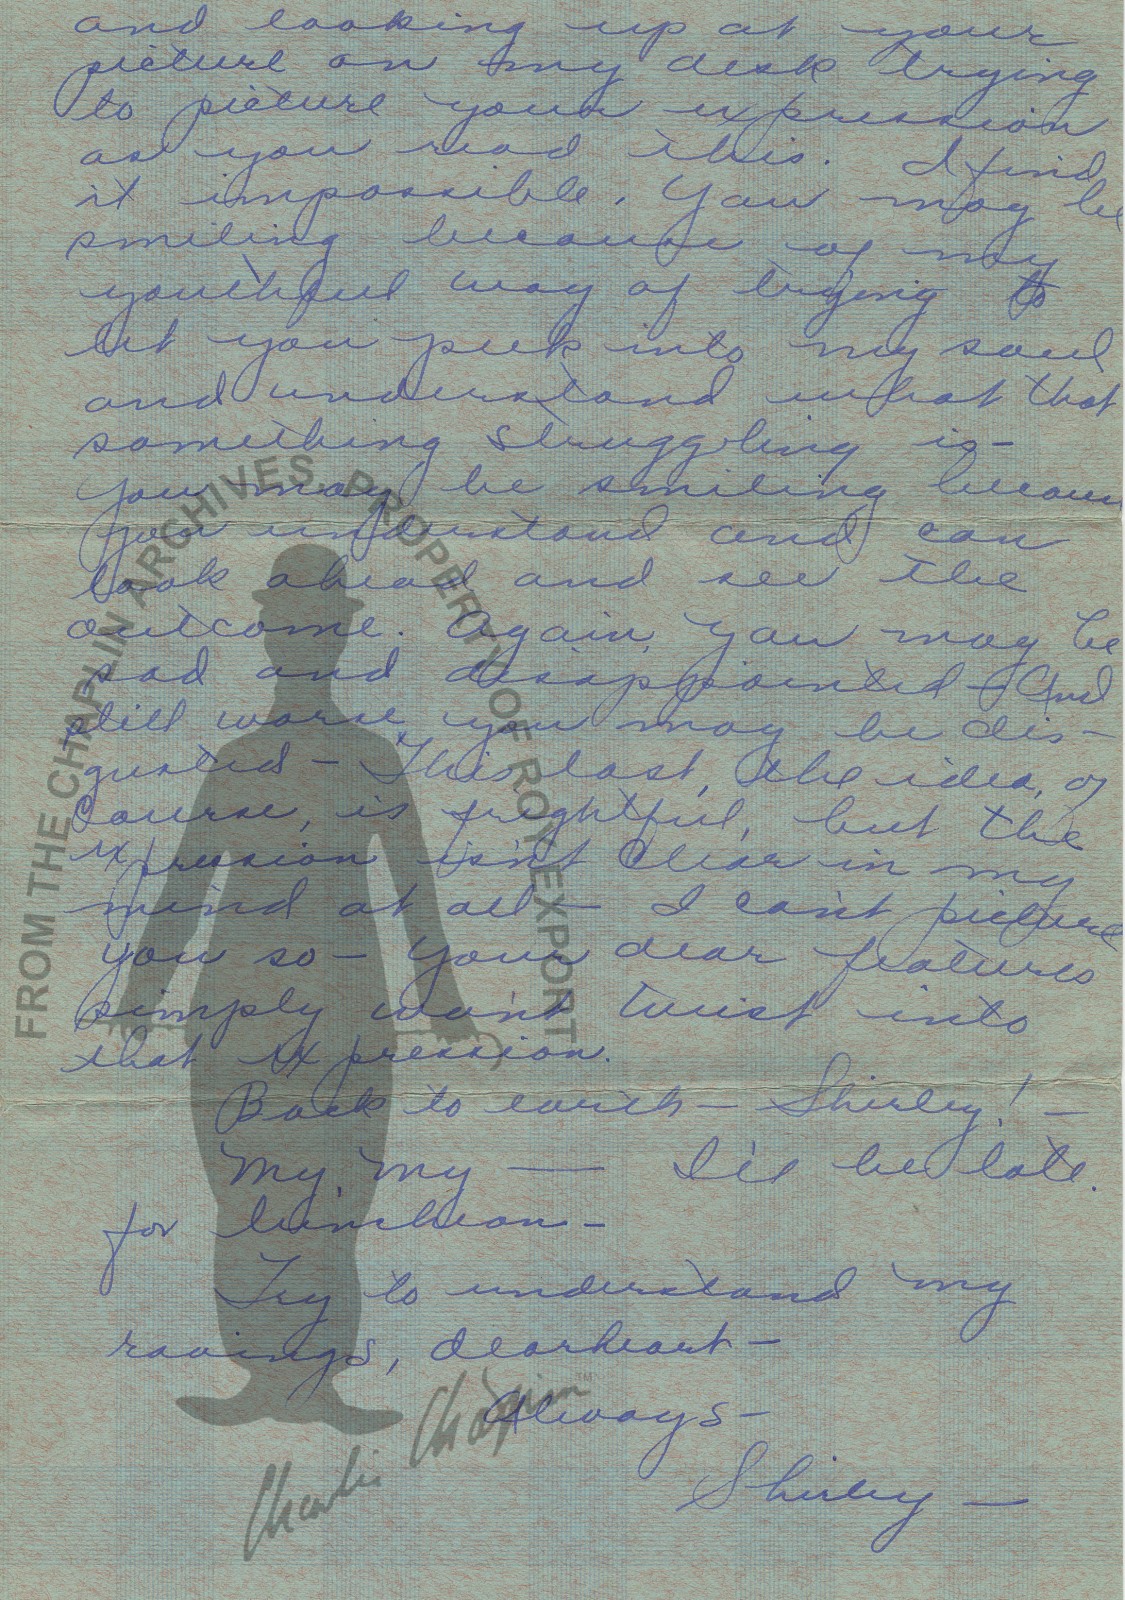 and looking up at your
picture on my desk trying
to picture your expression
as you read this. I find
it impossible. You may be
smiling because of my
youthful way of trying to
let you peek into my soul
and understand what that
something struggling is–
You may be smiling because
you understand and can
look ahead and see the
outcome. Again, you may be
sad and disappointed – And
still worse, you may be dis–
gusted – This last, the idea, of
course, is frightful, but the
expression isn't clear in my
mind at all – I can't picture
you so – Your dear features
simply won't twist into
that expression.
Back to earth – Shirley! –
My, my — I'll be late.
for luncheon –
Try to understand my
ravings, dearheart –
Always –
Shirley —
FROM THE CHAPLIN ARCHIVES, PROPERTY OF ROY EXPORT
Charlie Chaplin™